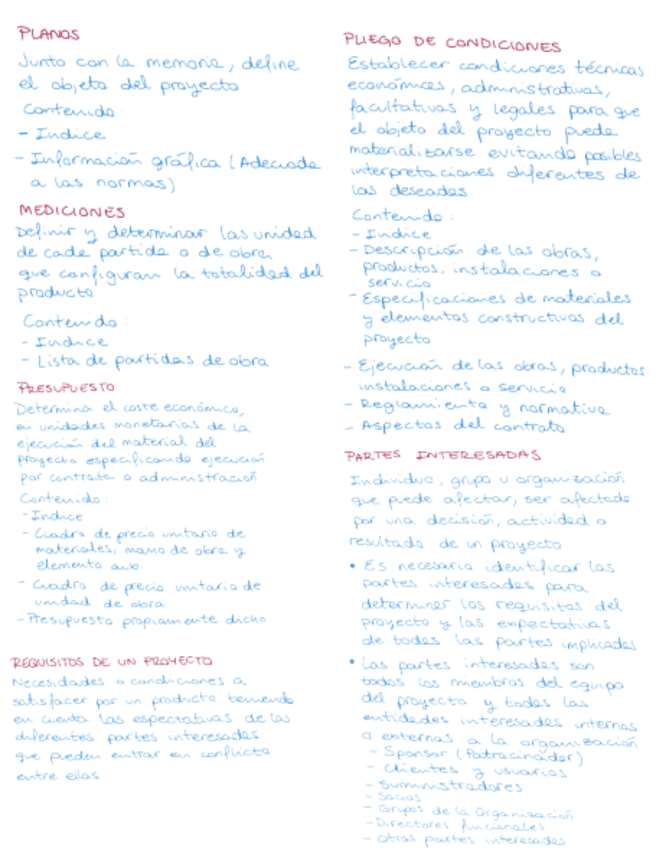 PLANOS
Junto con la memoria, define
el objeto del proyecto
Contenido:
- Indice
- Información gráfica (Adecuada
a las normas)
MEDICIONES
Definir y determinar las unidad
de cada partida o de obra
que configuran la totalidad del
producto
Contenido:
- Indice
- Lista de partidas de obra
PRESUPUESTO
Determina el coste económico,
en unidades monetarias de la
ejecución del material del
proyecto especificando ejecución
por contrata o administración
Contenido:
- Indice
- Cuadro de precio unitario de
materiales, mano de obra y
elemento aux.
- Cuadro de precio unitario de
unidad de obra
- Presupuesto propiamente dicho
REQUISITOS DE UN PROYECTO
Necesidades o condiciones a
satisfacer por un producto teniendo
en cuenta las espectativas de las
diferentes partes interesadas
que pueden entrar en conflicto
entre ellas
PLIEGO DE CONDICIONES
Establecer condiciones técnicas
económicas, administrativas,
facultativas y legales para que
el objeto del proyecto pueda
materializarse evitando posibles
interpretaciones diferentes de
las deseadas
Contenido:
- Indice
- Descripción de las obras,
productos, instalaciones o
servicio
- Especificaciones de materiales
y elementos constructivos del
proyecto
- Ejecución de las obras, productos
instalaciones o servicio
- Reglamiento y normativa
- Aspectos del contrato
PARTES INTERESADAS
Individuo, grupo u organización
que puede afectar, ser afectado
por una decisión, actividad o
resultado de un proyecto
• Es necesario identificar las
partes interesadas para
determinar los requisitos del
proyecto y las expectativas
de todas las partes implicadas
• Las partes interesadas son
todos los miembros del equipo
del proyecto y todas las
entidades interesadas internas
o externas a la organización
- Sponsor (Patrocinador)
- Clientes y usuarios
- Suministradores
- Socios
- Grupos de la Organización
- Directores funcionales
- Otras partes interesadas